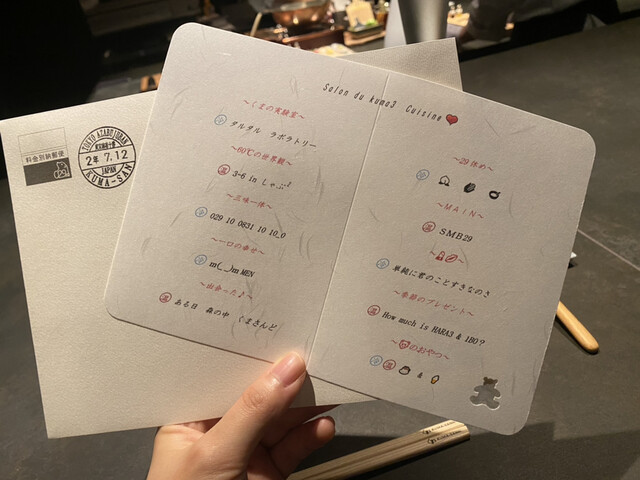 料金別納郵便
TOKYO AZABU JUBAN
2年 7.12
JAPAN
KUMA-SAN
Salon du kuma3 Cuisine
〜くまの実験室〜
冷 タルタル ラボラトリー
〜60℃の世界観〜
温 3-6 in しゃぶ
〜三味一体〜
冷 029 10 0831 10 10_0
〜一口の幸せ〜
冷 m(_ _)m MEN
〜出会った♪〜
温 ある日 森の中 くまさんど
〜29休め〜
冷
〜MAIN〜
温 SMB29
冷 単純に君のことすきなのさ
〜季節のプレゼント〜
温 How much is HARA3 & IBO?
〜のおやつ〜
冷 温 &